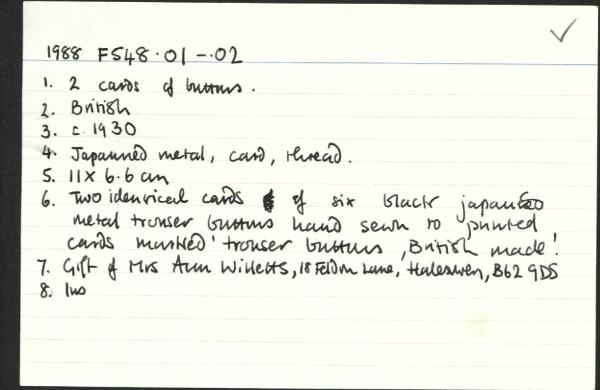 1988 F548.01 -.02
1. 2 cards of buttons.
2. British
3. c.1930
4. Japanned metal, card, thread.
5. 11 x 6.6 cm
6. Two identical cards of six black japanned
metal trouser buttons hand sewn to printed
cards marked 'trouser buttons, British made'.
7. Gift of Mrs Ann Willetts, 18 Feldon Lane, Halesowen, B62 9DS
8.